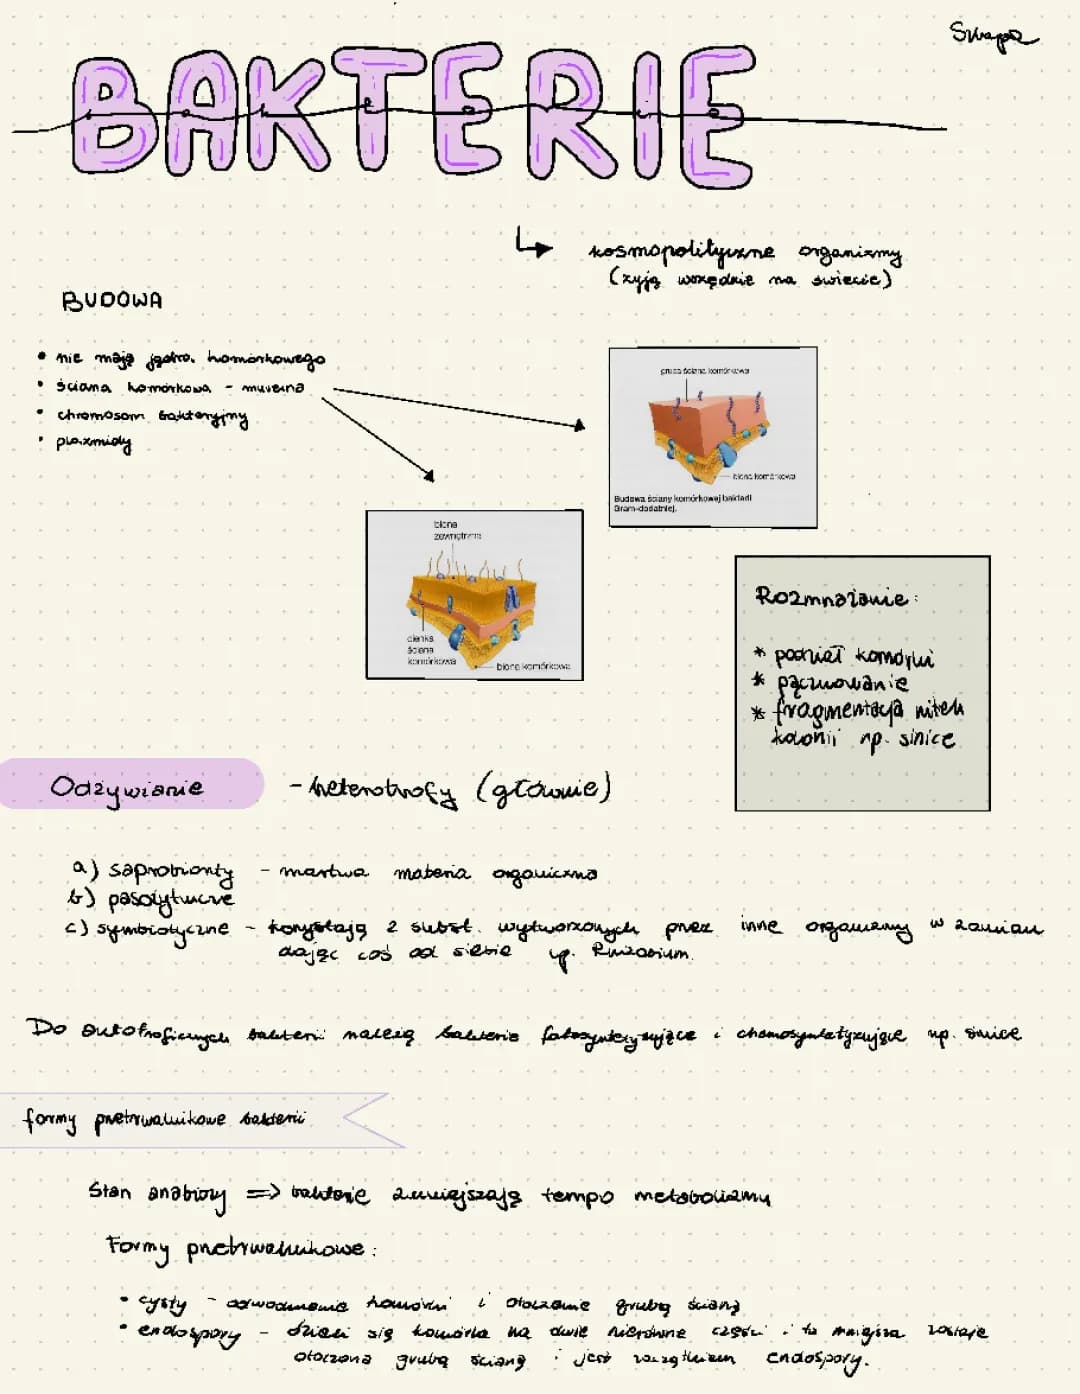 BAKTERIE
kosmopolityczne organizmy
(żyją wszędzie na świecie)
BUDOWA
• nie mają jądra komórkowego
• ściana komórkowa - mureina
• chromosom bakteryjny
• plazmidy
gruba ściana komórkowa
błona komórkowa
Budowa ściany komórkowej bakterii
Gram-dodatniej.
błona
zewnętrzna
cienka
ściana
komórkowa
błona komórkowa
Rozmnażanie:
* podział komórki
* pączkowanie
* fragmentacja nitek
kolonii np. sinice
Odżywianie
- heterotrofy (głównie)
a) saprobionty - martwa materia organiczna
b) pasożytnicze
c) symbiotyczne - korzystają z subst. wytworzonych przez inne organizmy w zamian
dając coś od siebie np. Rhizobium.
Do autotroficznych bakterii należą bakterie fotosyntetyzujące i chemosyntetyzujące np. sinice
formy przetrwalnikowe bakterii
Stan anabiozy => bakterie zmniejszają tempo metabolizmu
Formy przetrwalnikowe:
• cysty - odwodnienie komórki i otoczenie grubą ścianą
• endospory - dzieli się komórka na dwie nierówne części i ta mniejsza zostaje
otoczona grubą ścianą i jest zaczątkiem endospory.